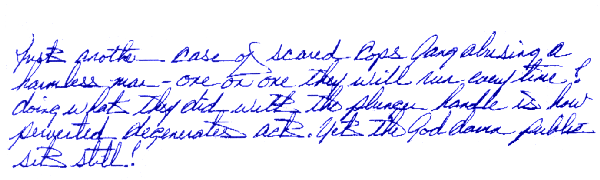 Just another case of scared cops Gang abusing a
harmless man - one on one they will run everytime!
doing what they did with the plunger handle is how
perverted degenerates act. Yet the God damn public
sits still!